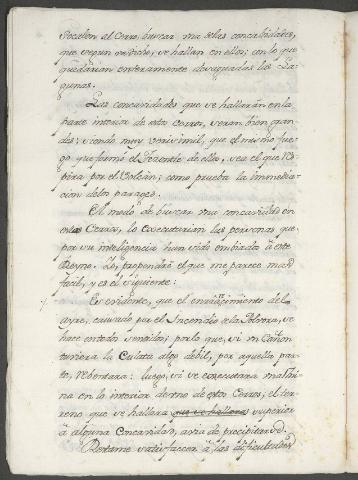 pocalen al Cerro, buscar una de las concabidades,
que segun va dicho, se hallan en ellos; con lo que
quedarian enteramente desaguadas las La-
gunas.
Las concavidades que se hallarán en la
parte interior de esta Cerros, seran bien gran-
des; siendo muy verisimil, que el mismo fue-
go que formó el de ellos, sea el que res-
pira por el Volcán; como prueba la immedia-
cion de los parages.
El modo de buscar una concavidad en
estos Cerros, lo executarian las personas que
por su inteligencia han sido embiadas à este
Reyno. Yo, propondré el que me parece mas
facil, y es el siguiente:
Es evidente, que el enrarecimiento del
ayre, causado por el Incendio de la Polvora, se
hace en todos sentidos; por lo que, si un Cañon
tuviera la Culata algo debil, por aquella par-
te, rebentara: luego, si se executara una Mi-
na en lo interior de uno de estos Cerros; el ter-
reno que se hallara que se hallara superior
à alguna Concavidad, avia de precipitarse.
Restame satisfaccer à las dificultades